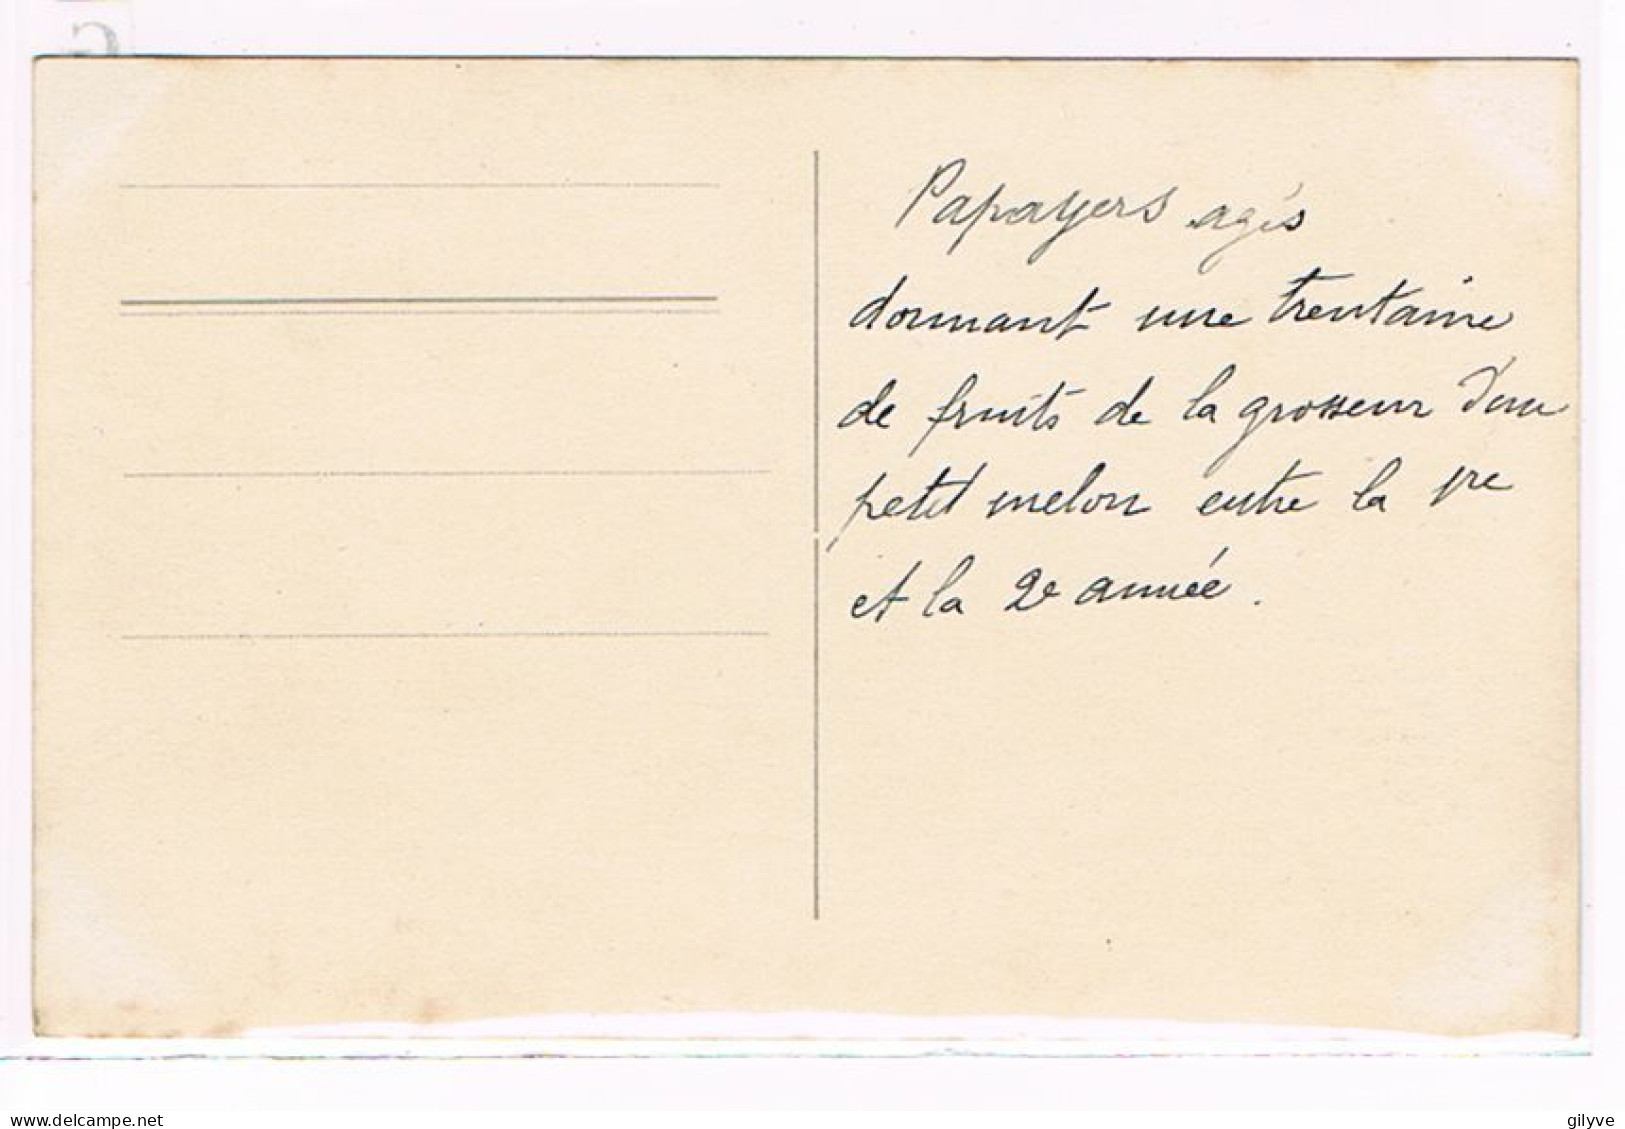 Papayers agés
donnant une trentaine
de fruits de la grosseur d'un
petit melon entre la 1re
et la 2e année.
www.delcampe.net
gilyve